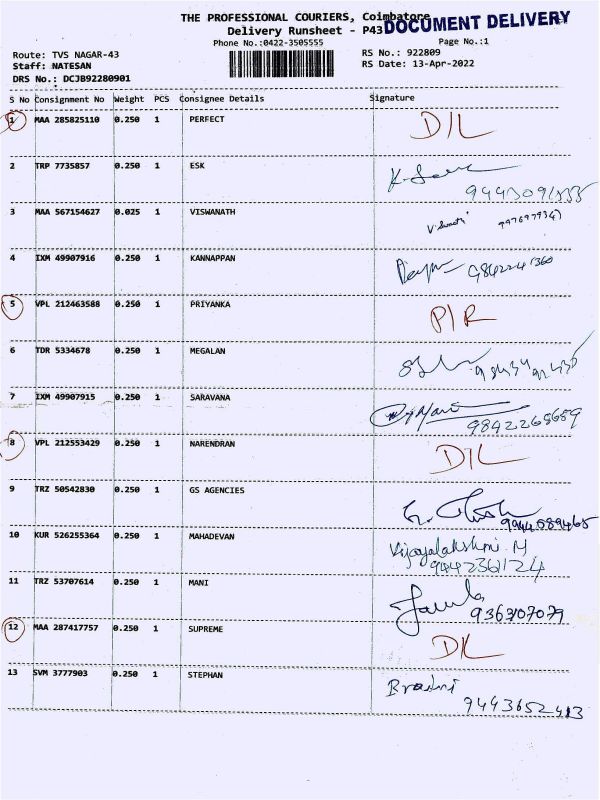 THE PROFESSIONAL COURIERS, Coimbatore
DOCUMENT DELIVERY
Delivery Runsheet - P43
Phone No.:0422-3505555
Page No.:1
Route: TVS NAGAR-43
RS No.: 922809
Staff: NATESAN
RS Date: 13-Apr-2022
DRS No.: DCJB92280901
S No Consignment No Weight PCS Consignee Details Signature
1 MAA 285825110 0.250 1 PERFECT D/L
2 TRP 7735857 0.250 1 ESK
3 MAA 567154627 0.025 1 VISWANATH
4 IXM 49907916 0.250 1 KANNAPPAN
5 VPL 212463588 0.250 1 PRIYANKA P/R
6 TDR 5334678 0.250 1 MEGALAN
7 IXM 49907915 0.250 1 SARAVANA
9842268689
8 VPL 212553429 0.250 1 NARENDRAN D/L
9 TRZ 50542830 0.250 1 GS AGENCIES
9944589465
10 KUR 526255364 0.250 1 MAHADEVAN Vijayalakshmi. M
9442361124
11 TRZ 53707614 0.250 1 MANI
9363107079
12 MAA 287417757 0.250 1 SUPREME D/L
13 SVM 3777903 0.250 1 STEPHAN
9443652413